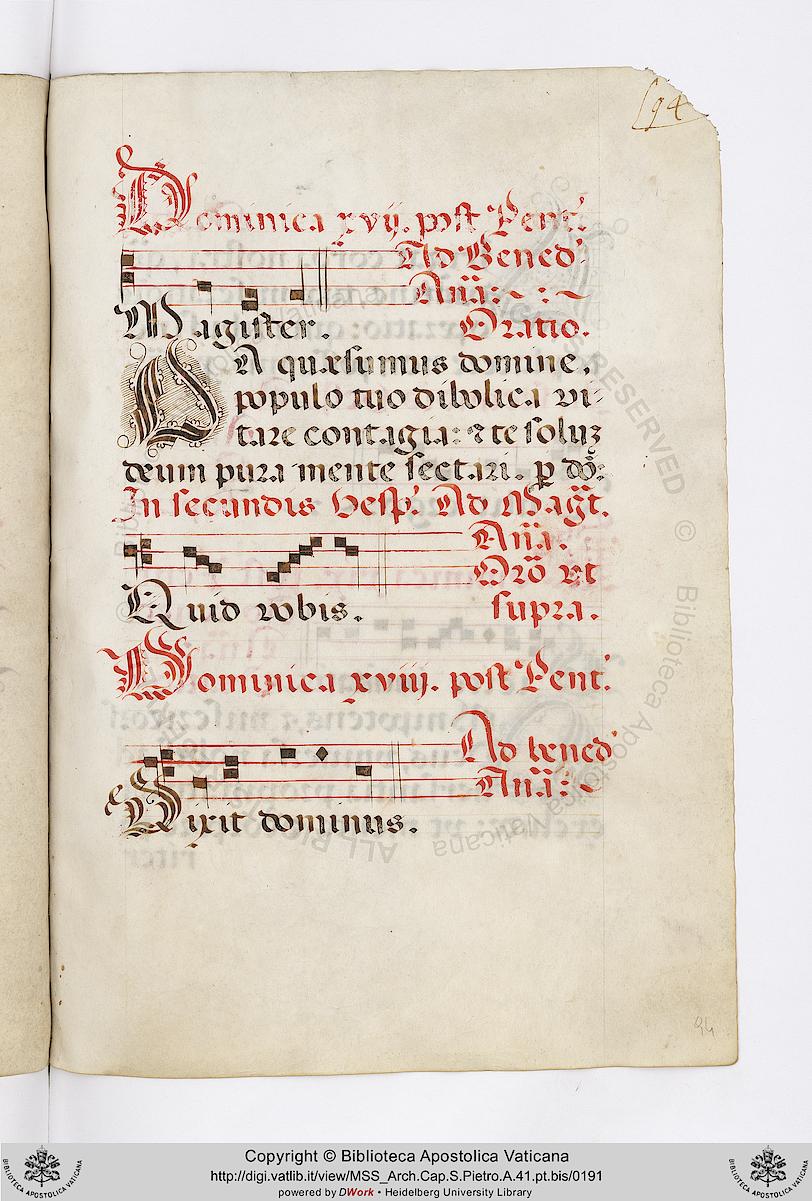 94
Dominica xvij. post Pent:
Ad Bened:
Aña:
Magister. Oratio.
DA quæsumus domine,
populo tuo dibolica vi-
tare contagia: & te soluz
deum pura mente sectari. per dõ:
In secundis vesp: Ad Magt.
Aña.
Orõ vt
Quid vobis. supra.
Dominica xviij. post Pent:
Ad bened:
Aña:
Dixit dominus.
94
ALL RIGHTS RESERVED © Biblioteca Apostolica Vaticana
Copyright © Biblioteca Apostolica Vaticana
http://digi.vatlib.it/view/MSS_Arch.Cap.S.Pietro.A.41.pt.bis/0191
powered by DWork • Heidelberg University Library
BIBLIOTECA APOSTOLICA VATICANA
BIBLIOTECA APOSTOLICA VATICANA